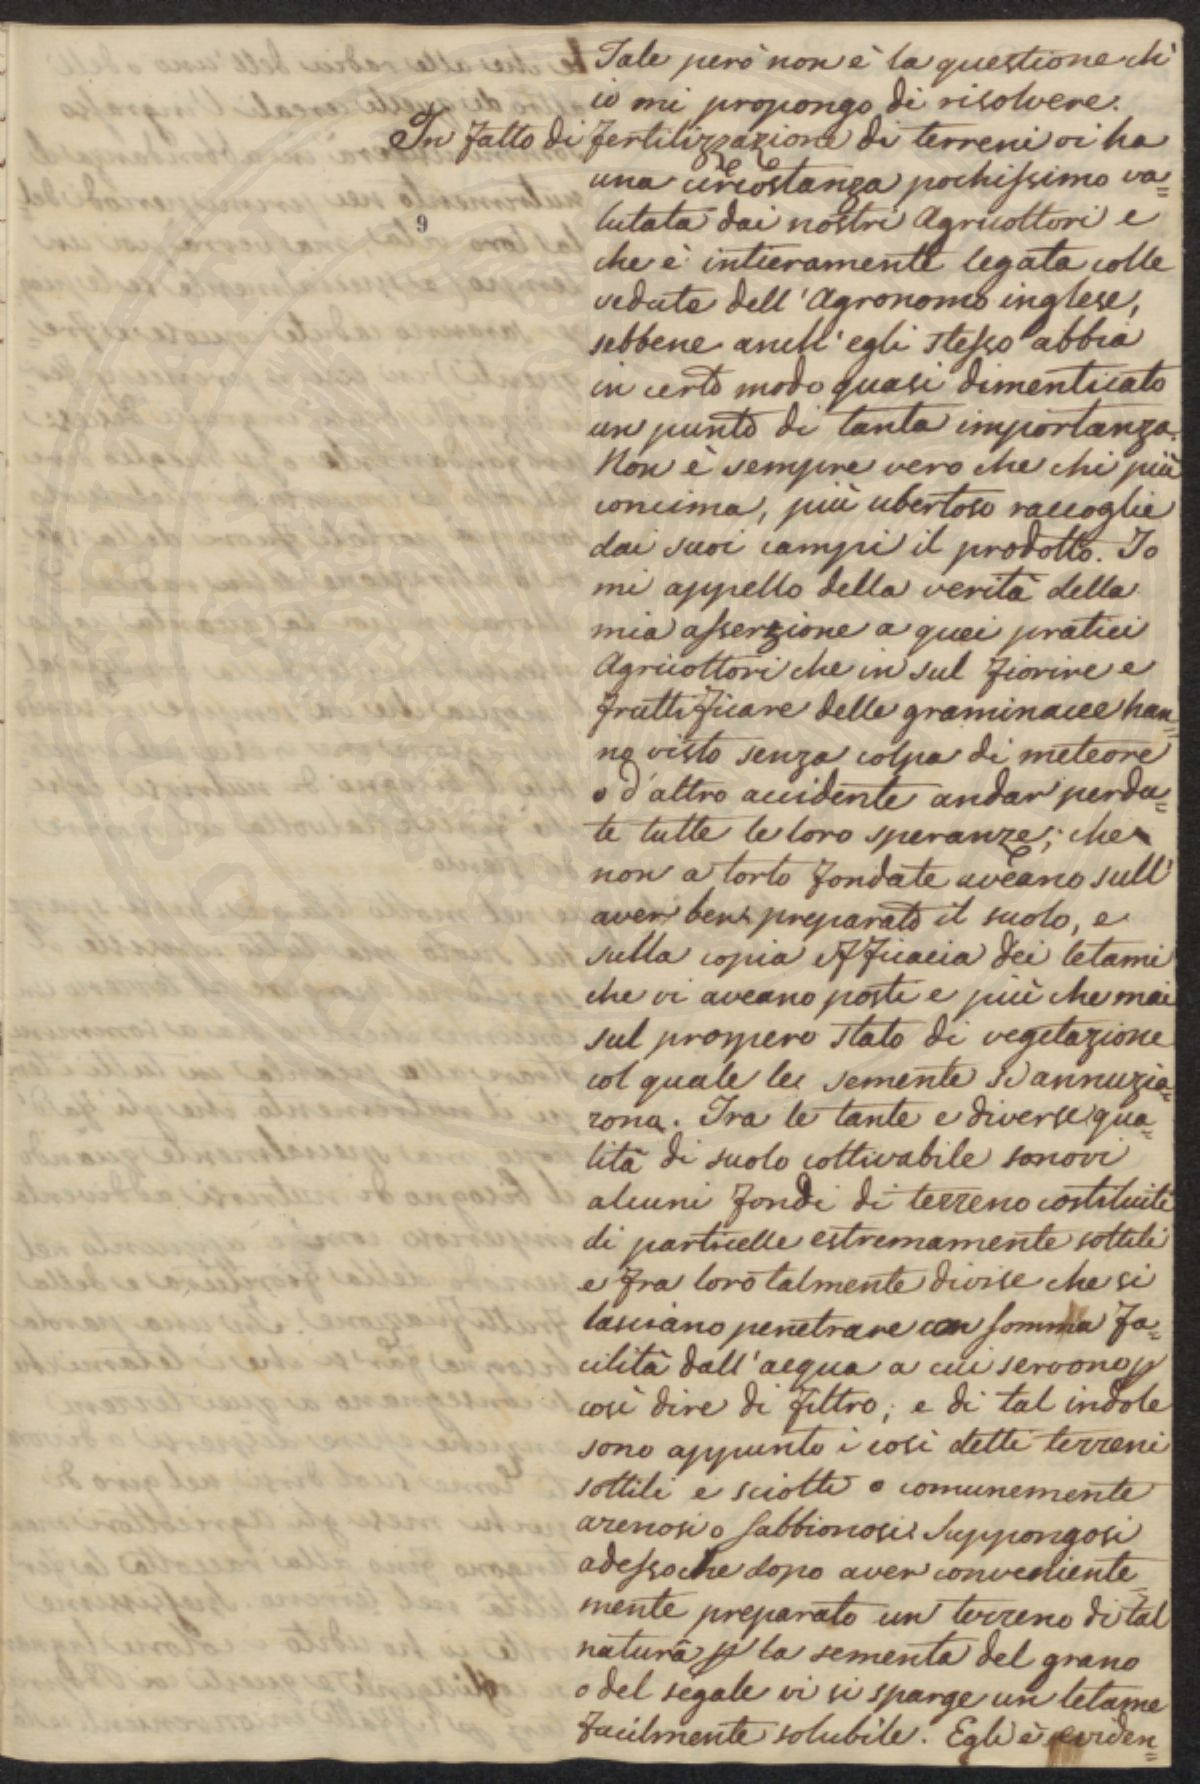 Tale però non è la questione ch'
io mi propongo di risolvere.
In fatto di fertilizzazione di terreni vi ha
una circostanza pochissimo va=
lutata dai nostri Agricoltori e
che è intieramente legata colle
vedute dell'Agronomo inglese,
sebbene anch'egli stesso abbia
in certo modo quasi dimenticato
un punto di tanta importanza.
Non è sempre vero che chi più
concima, più ubertoso raccoglie
dai suoi campi il prodotto. Io
mi appello della verità della
mia asserzione a quei pratici
Agricoltori che in sul fiorire e
fruttificare delle graminacee han=
no visto senza colpa di meteore
o d'altro accidente andar perdu=
te tutte le loro speranze; che
non a torto fondate aveano sull'
aver ben preparato il suolo, e
sulla copia efficacia dei letami
che vi aveano posti e più che mai
sul prospero stato di vegetazione
col quale le semente si annuzia=
rono. Tra le tante e diverse qua=
lità di suolo coltivabile sonovi
alcuni fondi di terreno costituiti
di particelle estremamente sottili
e fra loro talmente divise che si
lasciano penetrare con somma fa=
cilità dall'acqua a cui servono p
così dire di filtro; e di tal indole
sono appunto i così detti terreni
sottili e sciolti o comunemente
arenosi o sabbionosi. Suppongosi
adesso che dopo aver conveniente=
mente preparato un terreno di tal
natura p la sementa del grano
o del segale vi si sparge un letame
facilmente solubile. Egli è eviden=
9